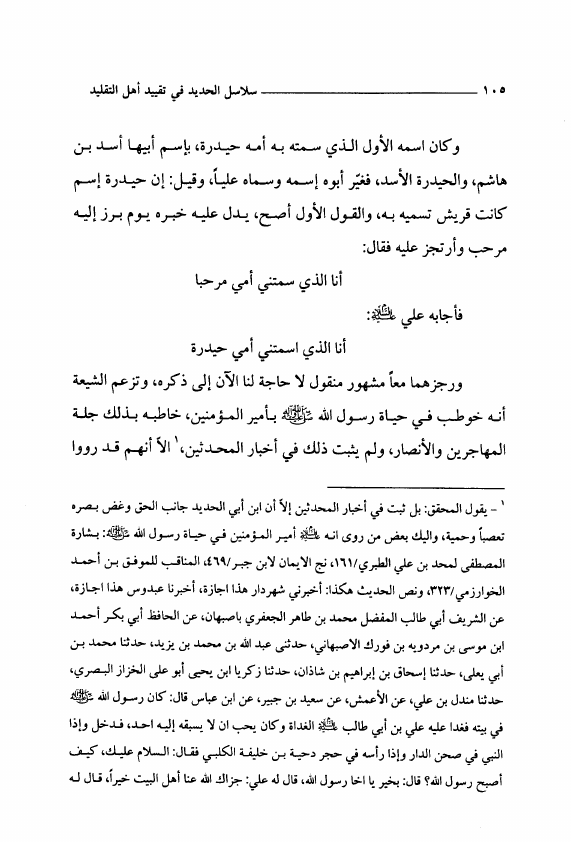 ١٠٥ ــــــــــــــــــــ سلاسل الحديد في تقييد أهل التقليد
وكان اسمه الأول الـذي سـمته بـه أمـه حيـدرة، بإسـم أبيهـا أسـد بـن
هاشم، والحيدرة الأسد، فغيّر أبوه إسمه وسماه علياً، وقيل: إن حيدرة إسم
كانت قريش تسميه بـه، والقـول الأول أصـح، يـدل عليـه خبـره يـوم بـرز إليـه
مرحب وأرتجز عليه فقال:
أنا الذي سمتني أمي مرحبا
فأجابه علي عليه السلام:
أنا الذي اسمتني أمي حيدرة
ورجزهما معاً مشهور منقول لا حاجة لنا الآن إلى ذكره، وتزعم الشيعة
أنـه خوطـب فـي حيـاة رسـول الله ﷺ بـأمير المـؤمنين، خاطبـه بـذلك جلـة
المهاجرين والأنصار، ولم يثبت ذلك في أخبار المحدثين،¹ الاّ أنهـم قـد رووا
¹ - يقول المحقق: بل ثبت في أخبار المحدثين إلاّ أن ابن أبي الحديد جانب الحق وغض بصره
تعصباً وحمية، واليك بعض من روى انه عليه السلام أمير المـؤمنين في حياة رسول الله ﷺ: بشارة
المصطفى لمحد بن علي الطبري/١٦١، نج الايمان لابن جبر/٤٦٩، المناقب للموفق بـن أحمـد
الخوارزمي/٣٢٣، ونص الحديث هكذا: أخبرني شهردار هذا اجازة، أخبرنا عبدوس هذا اجـازة،
عن الشريف أبي طالب المفضل محمد بن طاهر الجعفري باصبهان، عن الحافظ أبي بكر أحمـد
ابن موسى بن مردويه بن فورك الاصبهاني، حدثنى عبد الله بن محمد بن يزيد، حدثنا محمـد بـن
أبي يعلى، حدثنا إسحاق بن إبراهيم بن شاذان، حدثنا زكريا ابن يحيى أبو على الخزاز البـصري،
حدثنا مندل بن علي، عن الأعمش، عن سعيد بن جبير، عن ابن عباس قال: كان رسول الله ﷺ
في بيته فغدا عليه علي بن أبي طالب عليه السلام الغداة وكان يحب ان لا يسبقه إليـه احـد، فـدخل وإذا
النبي في صحن الدار وإذا رأسه في حجر دحية بـن خليفـة الكلبـي فقـال: الـسلام عليـك، كيـف
أصبح رسول الله؟ قال: بخير يا اخا رسول الله، قال له علي: جزاك الله عنا أهل البيت خيراً، قـال لـه